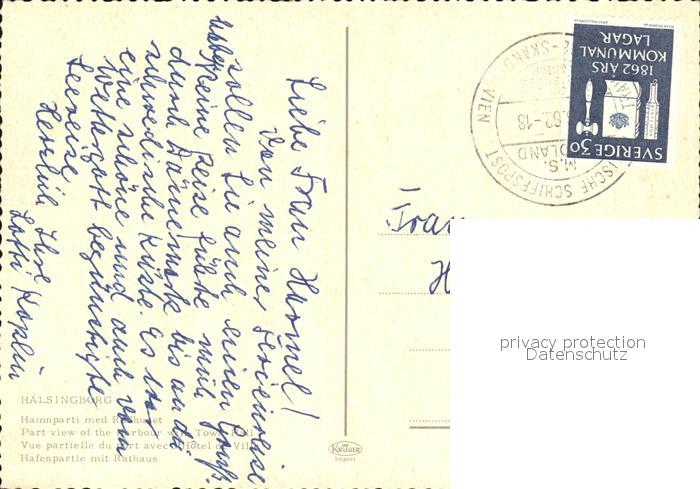 Liebe Frau Hummel!
Von meiner Ferienreise
sollen Sie auch einen Gruß
haben. Meine Reise führte mich
durch Dänemark bis an die
schwedische Küste. Es war
eine schöne und auch vom
Wettergott begünstigte
Seereise.
Herzlich Ihre
Lotti
HÄLSINGBORG
Hamnparti med Rådhuset
Part view of the harbour with Town Hall
Vue partielle du port avec l'Hôtel de Ville
Hafenpartie mit Rathaus
KRÜGER
import
Frau
H
SVERIGE 30
1862 ÅRS
KOMMUNAL
LAGAR
SCHIFFSPOST
M.S.
62-18
privacy protection
Datenschutz